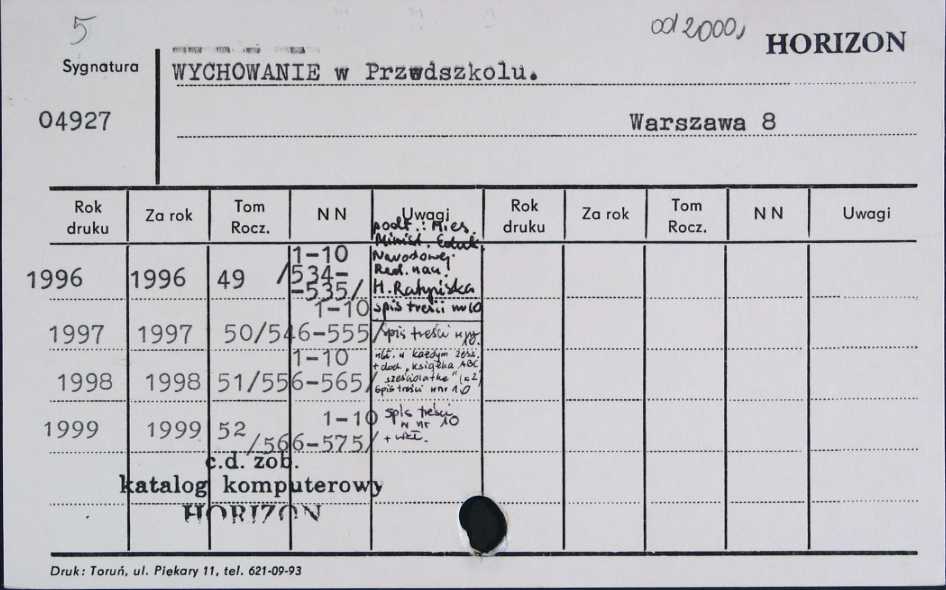 5
od 2000,
HORIZON
Sygnatura
WYCHOWANIE w Przedszkolu.
04927
Warszawa 8
Rok druku Za rok Tom Rocz. NN Uwagi Rok druku Za rok Tom Rocz. NN Uwagi
podt.: Mies.
Minist. Eduk.
Narodowej
Red. nau.
H. Ratyńska
1996 1996 49 1-10 /534-
-535/
spis treści w nr 10
1997 1997 50 1-10 /546-555/ spis treści
1998 1998 51 1-10 /556-565/ wkł. w każdym zesz.
+ dod. "książka ABC
sześciolatka"
spis treści w nr 10
1999 1999 52 1-10 /566-575/ spis treści
w nr 10
+ wkł.
c.d. zob.
katalog komputerowy
HORIZON
Druk: Toruń, ul. Piekary 11, tel. 621-09-93